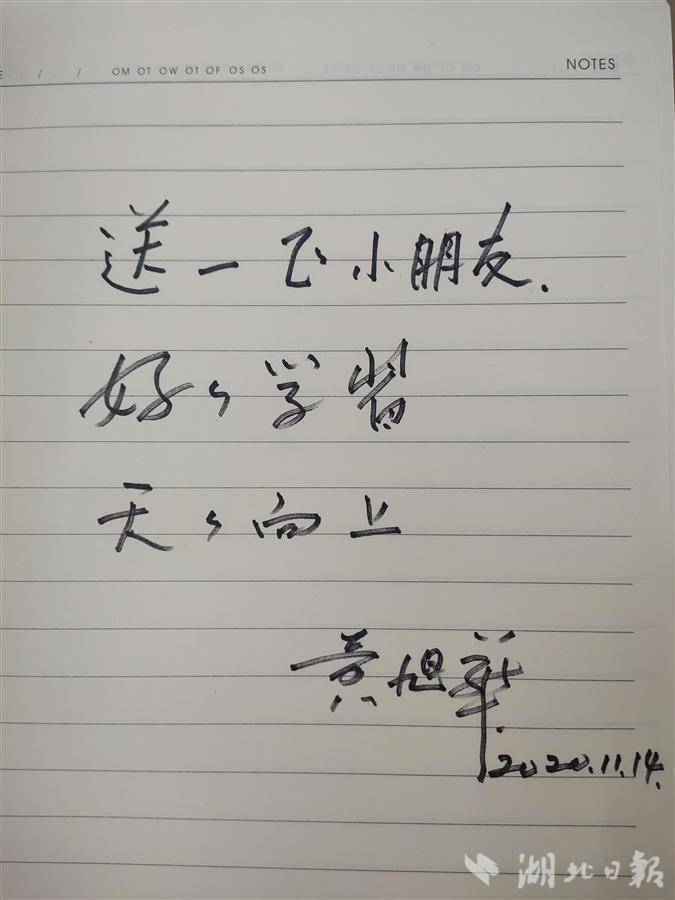 E / / OM OT OW OT OF OS OS NOTES
送一飞小朋友.
好々学習
天々向上
黄旭華
2020.11.14.
湖北日報